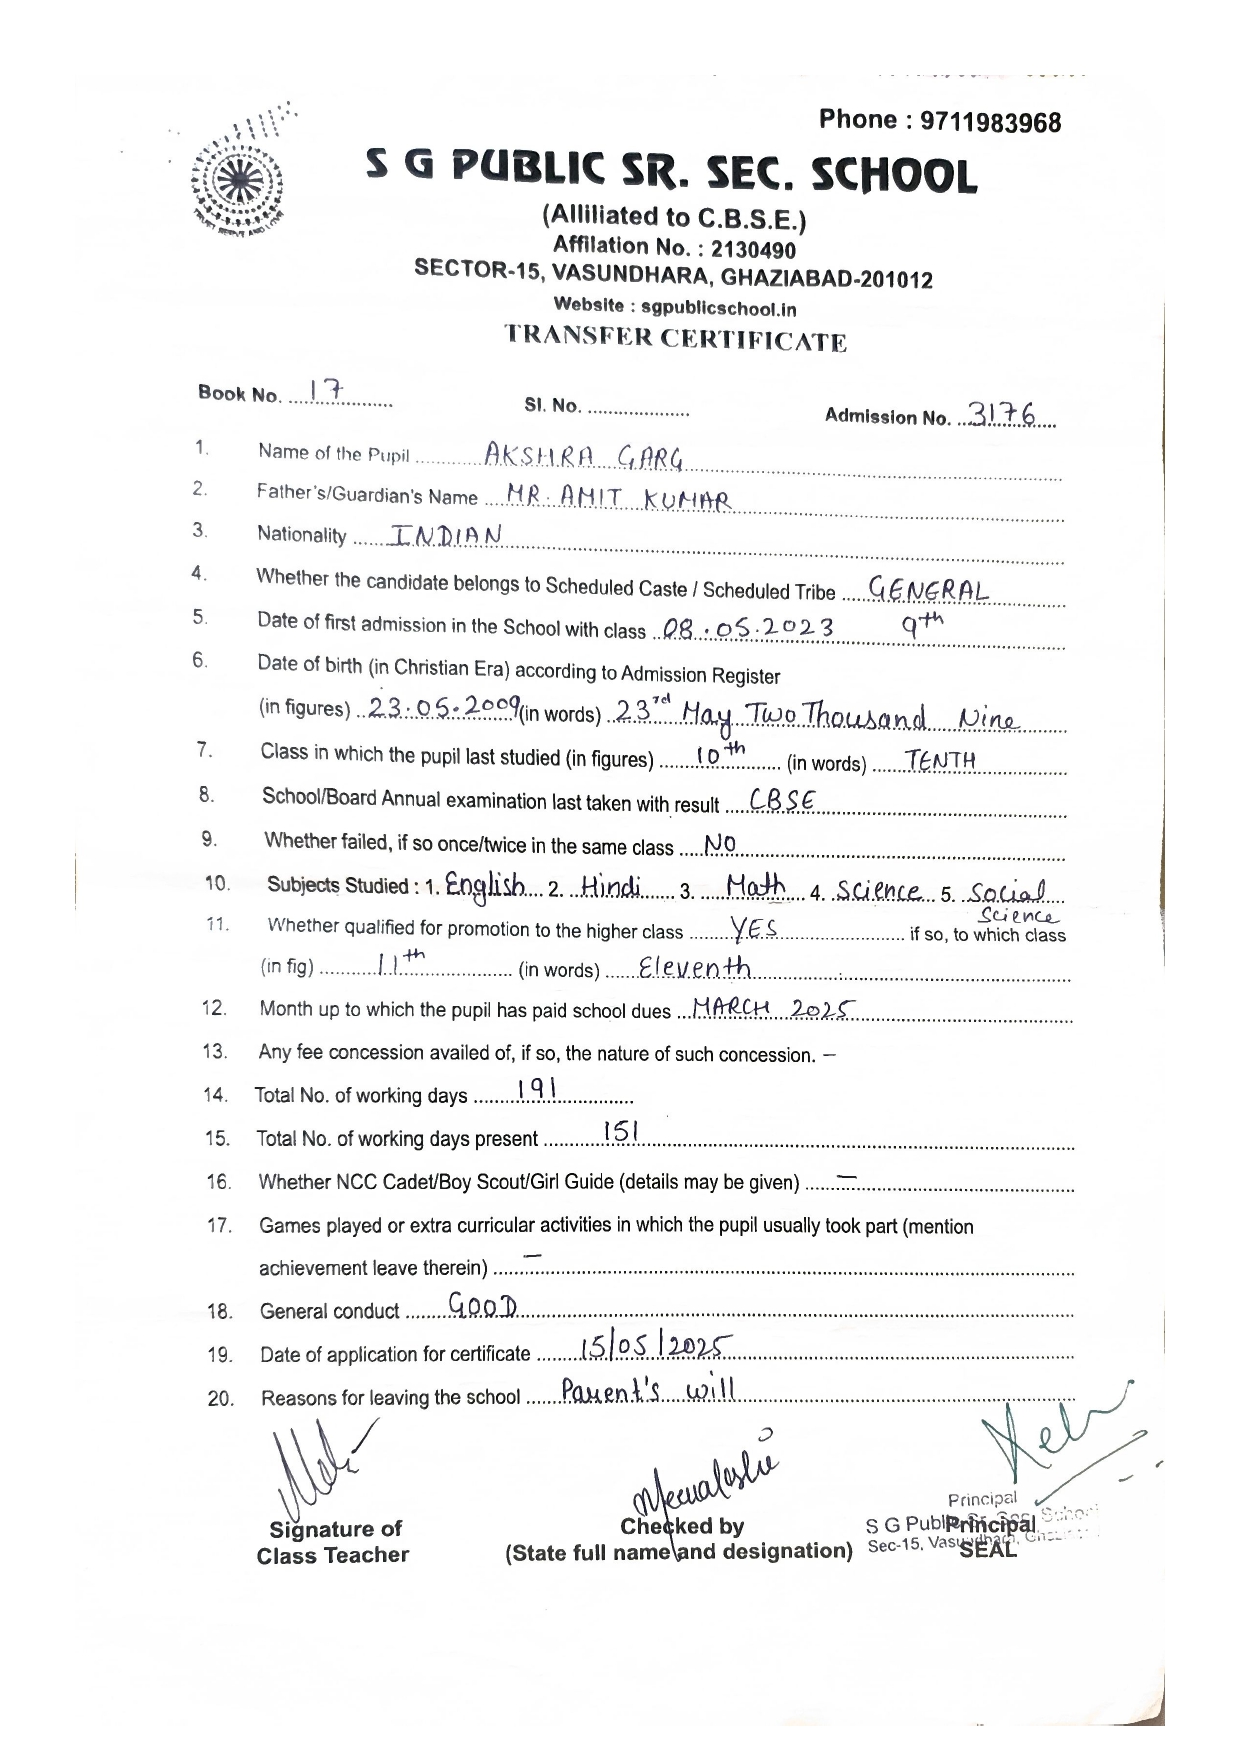 Phone : 9711983968
S G PUBLIC SR. SEC. SCHOOL
(Alliliated to C.B.S.E.)
Affilation No. : 2130490
SECTOR-15, VASUNDHARA, GHAZIABAD-201012
Website : sgpublicschool.in
TRANSFER CERTIFICATE
TRUST SERVE AND LOVE
Book No. 17 Sl. No. Admission No. 3176
1. Name of the Pupil AKSHRA GARG
2. Father's/Guardian's Name MR. AMIT KUMAR
3. Nationality INDIAN
4. Whether the candidate belongs to Scheduled Caste / Scheduled Tribe GENERAL
5. Date of first admission in the School with class 08.05.2023 9th
6. Date of birth (in Christian Era) according to Admission Register
(in figures) 23.05.2009 (in words) 23rd May Two Thousand Nine
7. Class in which the pupil last studied (in figures) 10th (in words) TENTH
8. School/Board Annual examination last taken with result CBSE
9. Whether failed, if so once/twice in the same class NO
10. Subjects Studied : 1. English 2. Hindi 3. Math 4. Science 5. Social Science
11. Whether qualified for promotion to the higher class YES if so, to which class
(in fig) 11th (in words) Eleventh
12. Month up to which the pupil has paid school dues MARCH 2025
13. Any fee concession availed of, if so, the nature of such concession. –
14. Total No. of working days 191
15. Total No. of working days present 151
16. Whether NCC Cadet/Boy Scout/Girl Guide (details may be given) –
17. Games played or extra curricular activities in which the pupil usually took part (mention
achievement leave therein) –
18. General conduct GOOD
19. Date of application for certificate 15/05/2025
20. Reasons for leaving the school Parent's will
Signature of
Class Teacher
Checked by
(State full name and designation)
Principal
S G Public
Sec-15,
Principal
SEAL